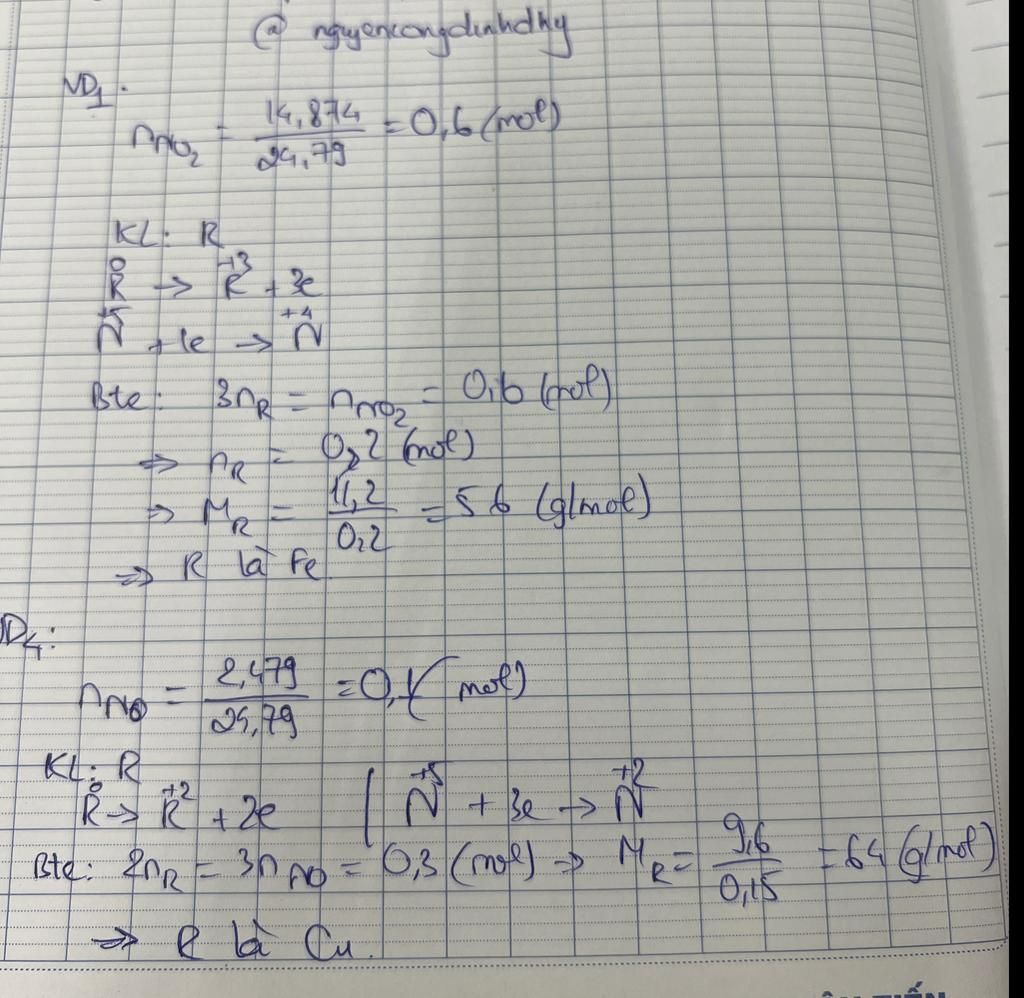 @ nguyencongdinhdhy
VD1.
nNO2 = 14,874/24,79 = 0,6 (mol)
KL: R
R⁰ → R⁺³ + 3e
N⁺⁵ + 1e → N⁺⁴
Bte: 3nR = nNO2 = 0,6 (mol)
⇒ nR = 0,2 (mol)
⇒ MR = 11,2/0,2 = 56 (g/mol)
⇒ R là Fe
VD4:
nNO = 2,479/24,79 = 0,1 (mol)
KL: R
R⁰ → R⁺² + 2e | N⁺⁵ + 3e → N⁺²
Bte: 2nR = 3nNO = 0,3 (mol) ⇒ MR = 9,6/0,15 = 64 (g/mol)
⇒ R là Cu.